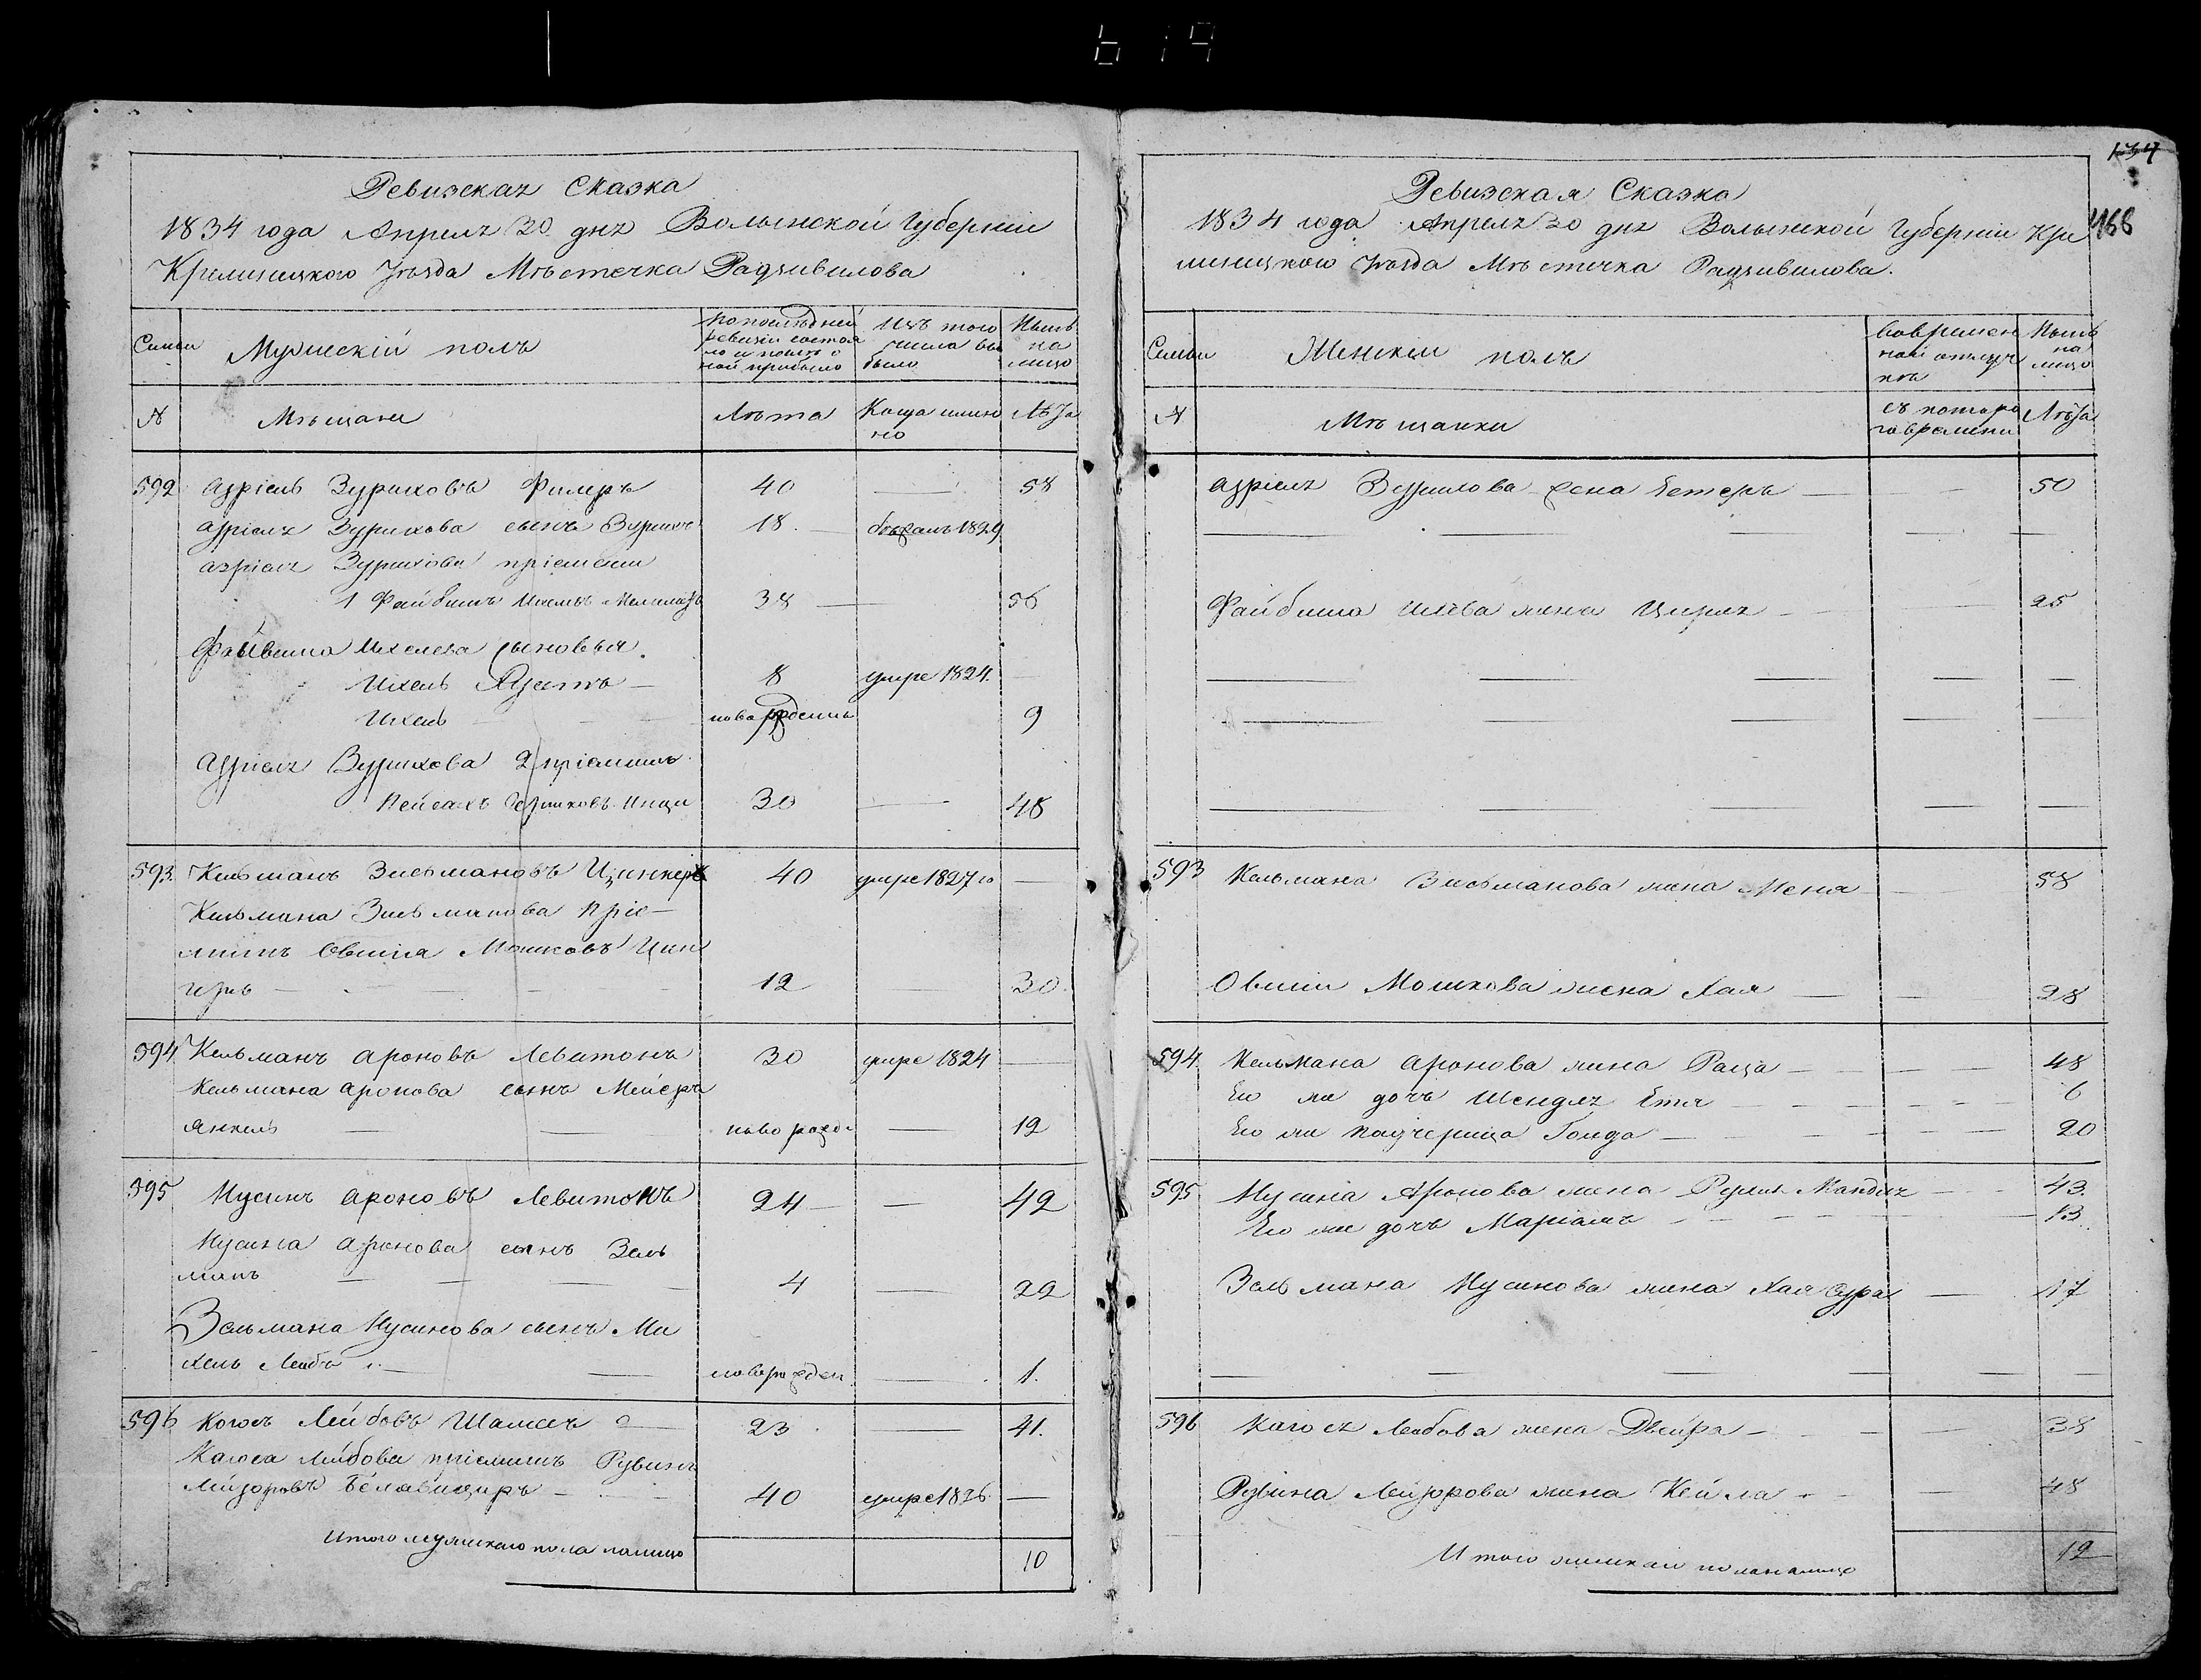 619
Ревизская Сказка
1834 года Апреля 20 дня Волынской Губернiи
Кременецкого Уѣзда Мѣстечка Радзивилова
Семьи
Мужескiй полъ
По послѣдней ревизiи состояло и послѣ оной прибыло
Изъ того числа выбыло
Нынѣ на лицо
№
Мѣщане
Лѣта
Когда именно
Лѣта
592 Азрiель Зуриховъ Фишеръ 40 — 58
Азрiеля Зурихова сынъ Зурихъ 18 бѣжалъ 1829
Азрiеля Зурихова прiемыши
1 Файбишъ Ихелевъ 38 — 56
Файвиша Ихелева сыновья
Ихель 8 умре 1824 —
Ихель — новорожденъ 9
Азрiеля Зурихова 2 прiемышъ
Пейсахъ 30 — 48
593 Кельманъ Зисьмановъ Цингеръ 40 умре 1827 го —
Кельмана Зисьманова прiе-
мышъ Овшiя Мошковъ Цин
геръ — 12 — 30
594 Кельманъ Ароновъ Левитонъ 30 умре 1824 —
Кельмана Аронова сынъ Мейеръ
Янкель — — ново рожд. — 12
595 Нусинъ Ароновъ Левитонъ 24 — 42
Нусина Аронова сынъ Зель
манъ — — — 4 — 22
Зельмана Нусинова сынъ Ми
хель Лейбъ — — новорожден — 1.
596 Когосъ Лейбовъ Шамесъ — 23 — 41.
Кагоса Лейбова прiемышъ Рувинъ
Лейзоровъ 40 умре 1826 —
Итого мужеского пола налицо 10
134
468
Ревизская Сказка
1834 года Апреля 30 дня Волынской Губернiи Кре
менецкого Уѣзда Мѣстечка Радзивилова.
Семьи
Женскiй полъ
Во временной отлучкѣ
Нынѣ на лицо
№
Мѣщанки
съ которого времени
Лѣта
Азрiеля Зурихова жена Естеръ — — 50
Файбиша Ихелева жена Цирля — — 25
593 Кельмана Зисьманова жена Меня — 58
Овшiи Мошкова жена Хая — — 28
594 Кельмана Аронова жена Раца — — 48
Его же дочь Шендля Етя — — 6
Его же падчерица Голда — — 20
595 Нусина Аронова жена — 43.
Его же дочь Марiамъ — — 13
Зельмана Нусинова жена Хая Сура — 17
596 Кагоса Лейбова жена Двейра — — 38
Рувина Лейзорова жена Кейла — — 48
Итого женскаго пола налицо 12